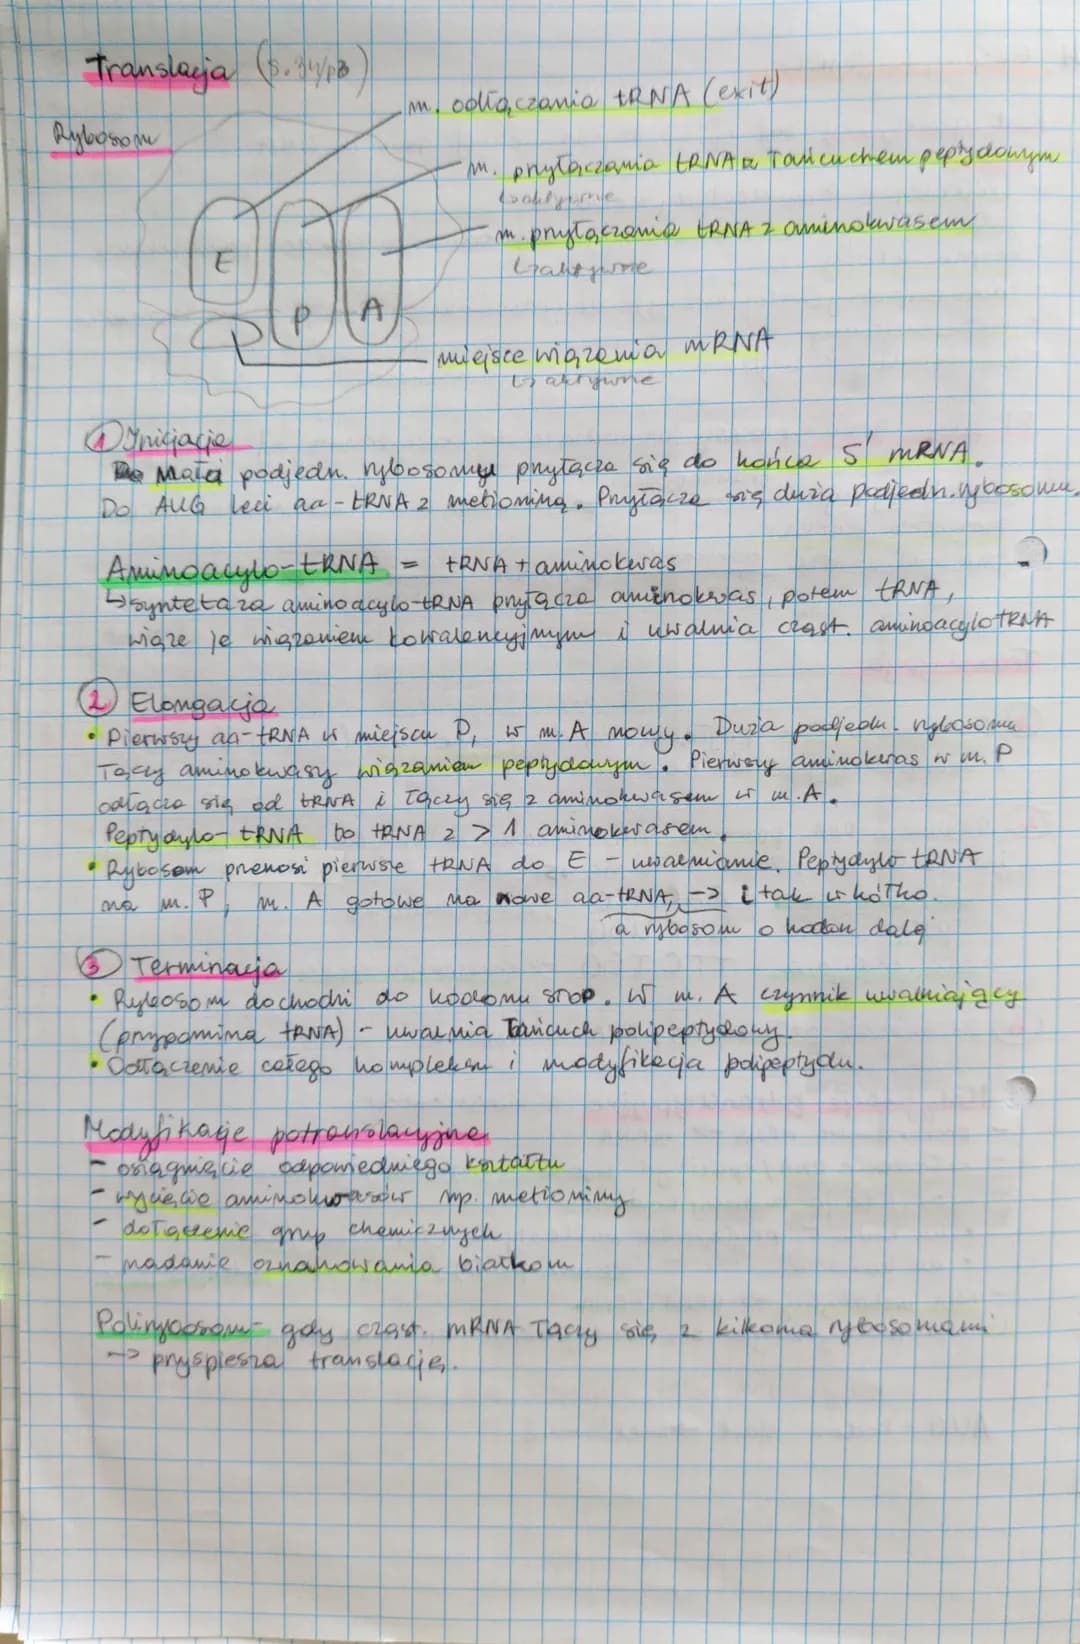 Translacja (s. 34/p3)
m. odłączania tRNA (exit)
Rybosom
m. przyłączania tRNA z łańcuchem peptydowym
↳ aktywne
m. przyłączania tRNA z aminokwasem
↳ aktywne
E
P
A
miejsce wiązania mRNA
↳ aktywne
① Inicjacja
Mała podjedn. rybosomu przyłącza się do końca 5' mRNA.
Do AUG leci aa-tRNA z metioniną. Przyłącza się duża podjedn. rybosomu.
Aminoacylo-tRNA = tRNA + aminokwas
↳ syntetaza aminoacylo-tRNA przyłącza aminokwas, potem tRNA,
wiąże je wiązaniem kowalencyjnym i uwalnia cząst. aminoacylotRNA
② Elongacja
• Pierwszy aa-tRNA w miejscu P, w m. A nowy. Duża podjedn. rybosomu
łączy aminokwasy wiązaniem peptydowym. Pierwszy aminokwas w m. P
odłącza się od tRNA i łączy się z aminokwasem w m. A.
Peptydylo-tRNA to tRNA z > 1 aminokwasem.
• Rybosom przenosi pierwsze tRNA do E - uwalnianie. Peptydylo-tRNA
na m. P, m. A gotowe na nowe aa-tRNA, -> i tak w kółko.
a rybosom o kodon dalej
③ Terminacja
• Rybosom dochodzi do kodonu STOP. W m. A czynnik uwalniający
(przypomina tRNA) - uwalnia łańcuch polipeptydowy.
• Odłączenie całego kompleksu i modyfikacja polipeptydu.
Modyfikacje potranslacyjne
- osiągnięcie odpowiedniego kształtu
- wycięcie aminokwasów np. metioniny
- dołączenie grup chemicznych
- nadanie oznakowania białkom
Polirybosom - gdy cząst. mRNA łączy się z kilkoma rybosomami
-> przyspiesza translację.